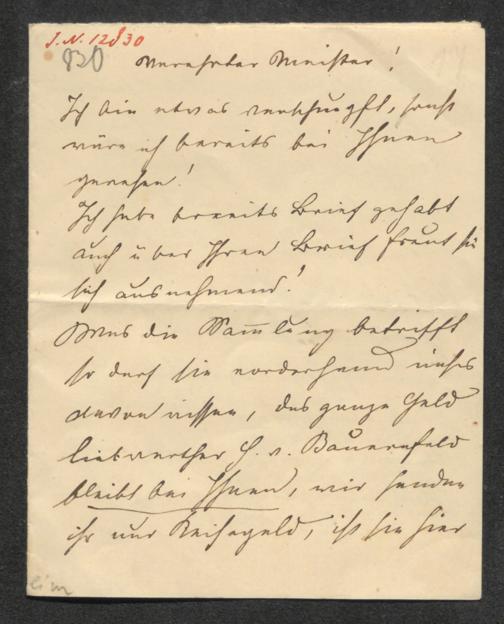 J.N. 12830
830
Verehrter Meister!
Ich bin etwas verschnupft, sonst
wäre ich bereits bei Ihnen
gewesen!
Ich habe bereits Brief gehabt
auch über Ihren Brief freut sie
sich ausnehmend!
Was die Sammlung betrifft
so darf sie vorderhand nichts
davon wissen, das ganze Geld
liebwerther H. v. Bauernfeld
bleibt bei Ihnen, wir senden
ihr nur Reisegeld, ist sie hier